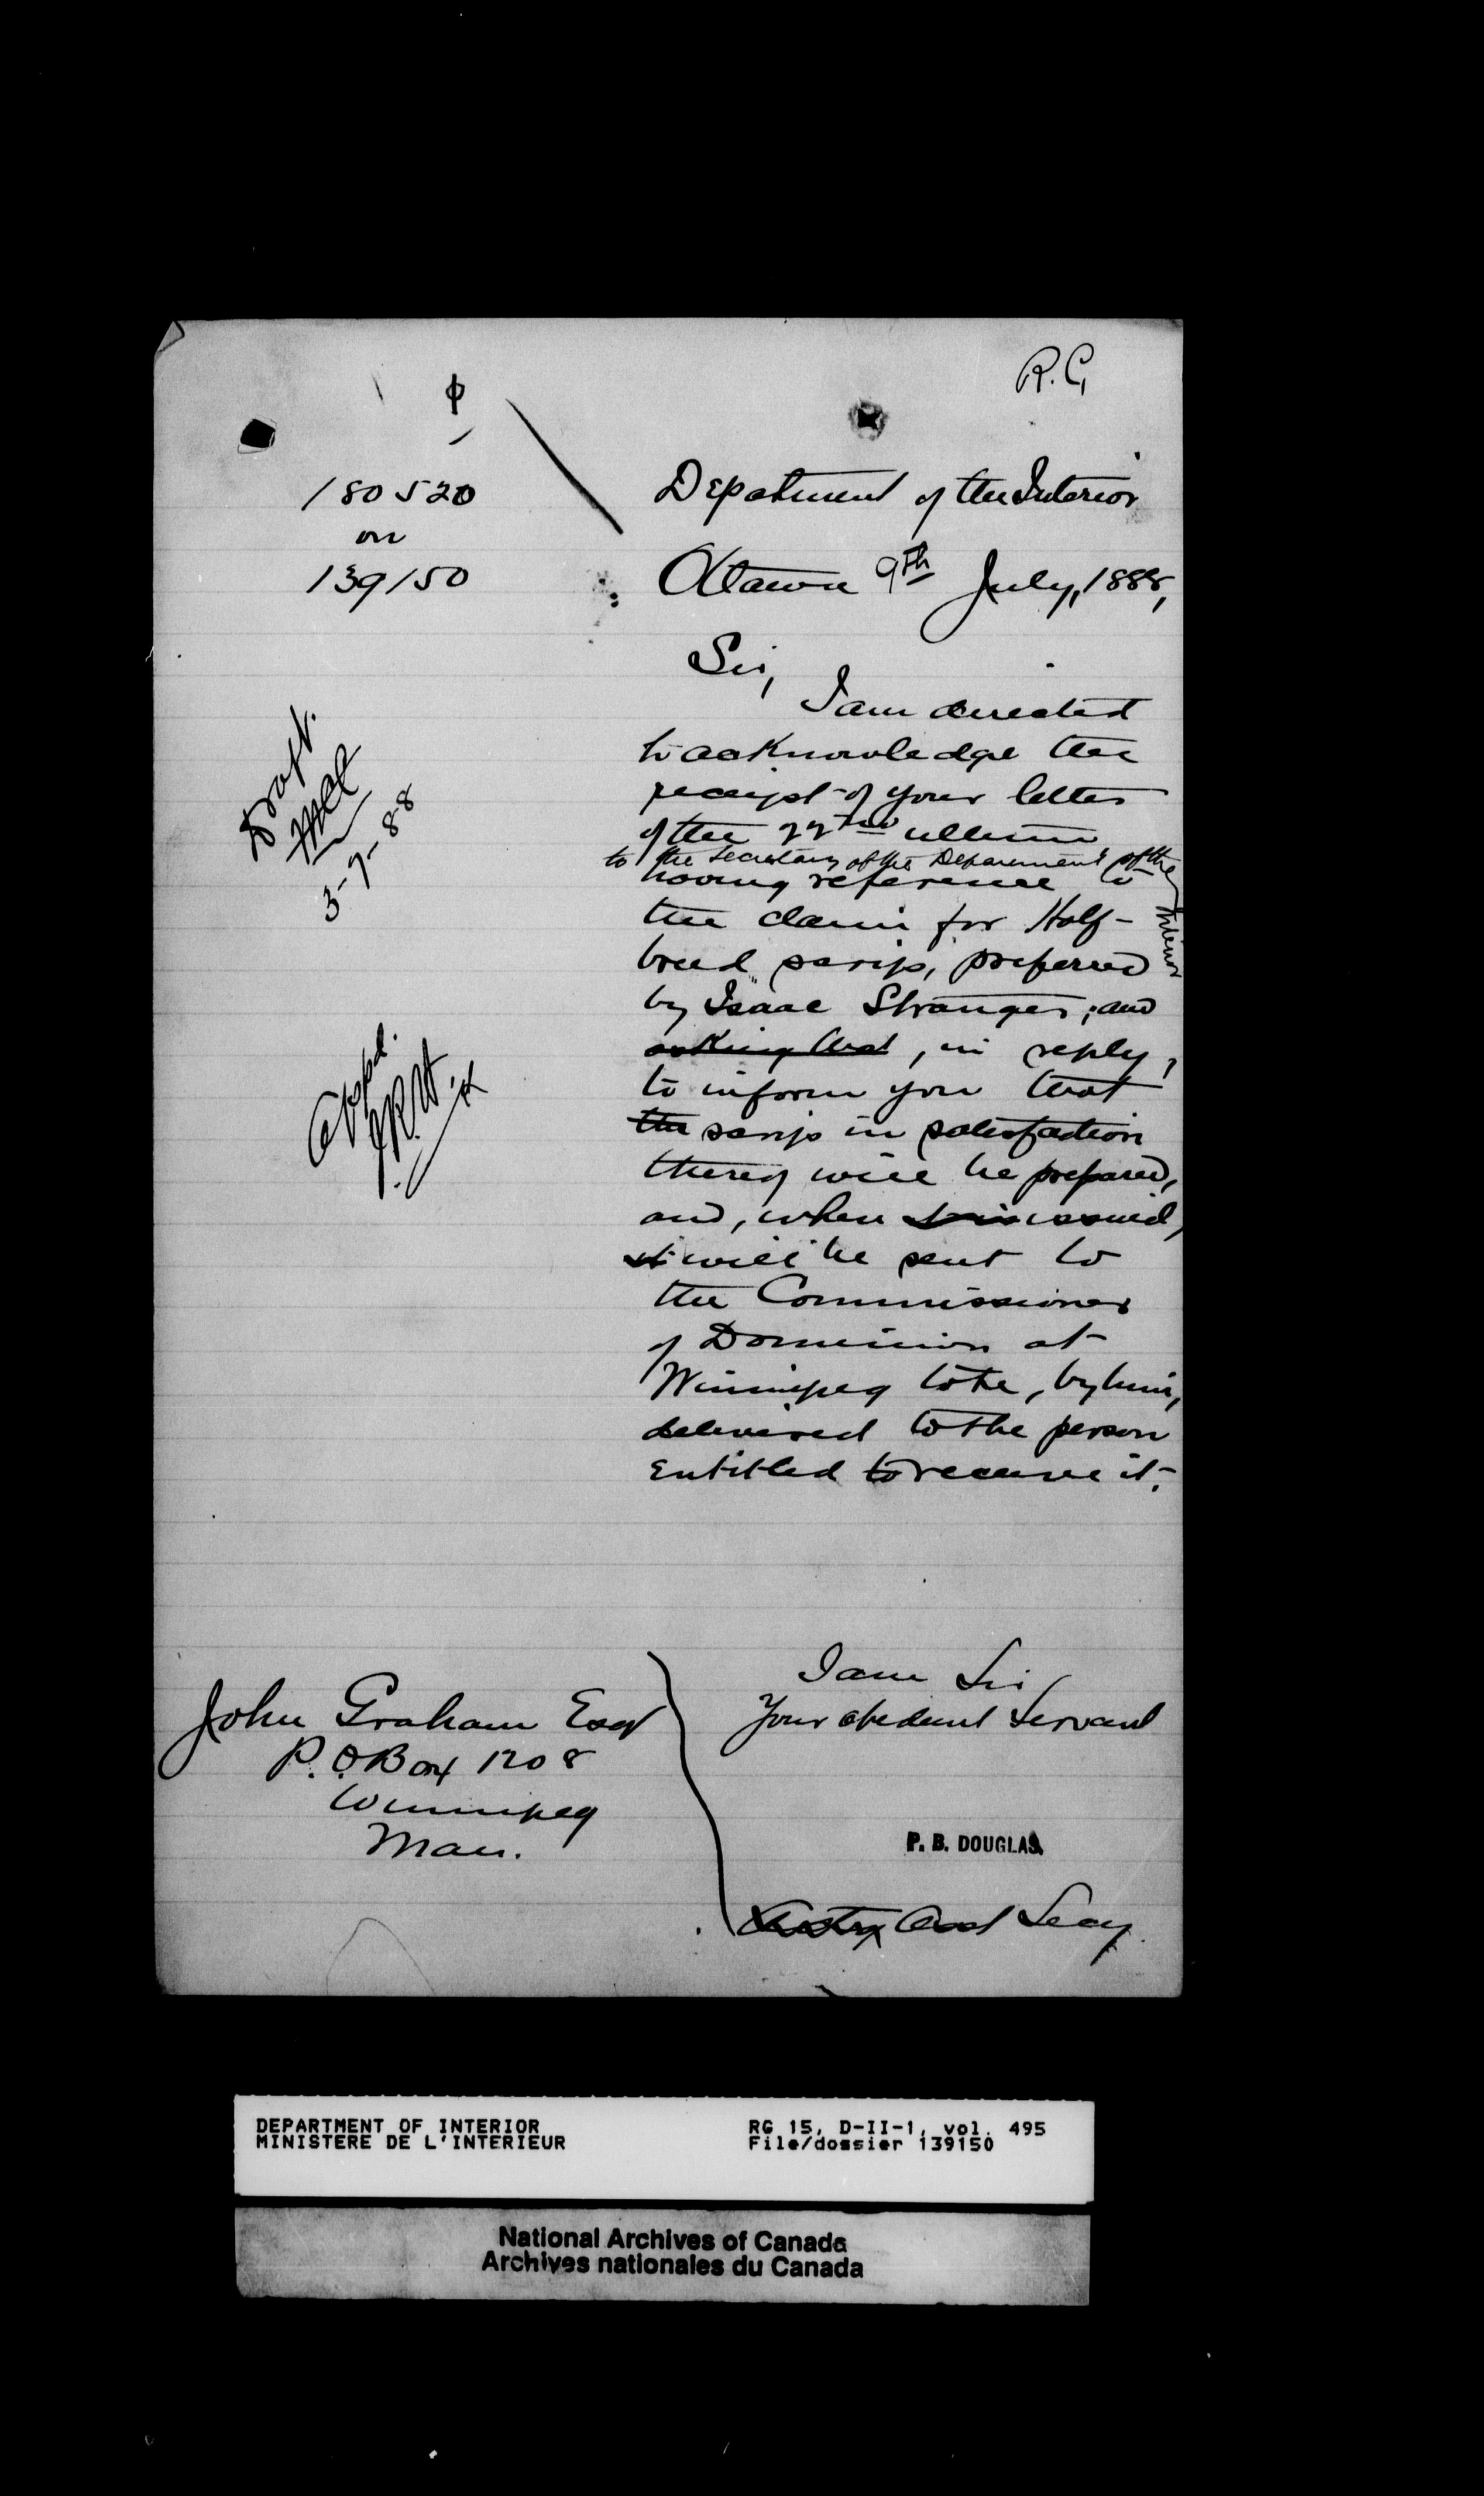 R.C.
180520
on
139150
Department of the Interior
Ottawa 9th July, 1888,
Sir,
I am directed
to acknowledge the
receipt of your letter
of the 22nd ultimo
to the Secretary of the Department of the Interior
having reference to
the claim for Half-
breed scrip, preferred
by Isaac Stranger; and
asking that, in reply,
to inform you that
the scrip in satisfaction
thereof will be prepared,
and, when issued,
it will be sent to
the Commissioner
of Dominion at
Winnipeg to be, by him,
delivered to the person
entitled to receive it.
Draft.
3-7-88
Appd.
I am Sir
Your obedient Servant
John Graham Esqr
P.O Box 1208
Winnipeg
Man.
P. B. DOUGLAS,
Asst Secy.
DEPARTMENT OF INTERIOR
MINISTERE DE L'INTERIEUR
RG 15, D-II-1, vol. 495
File/dossier 139150
National Archives of Canada
Archives nationales du Canada